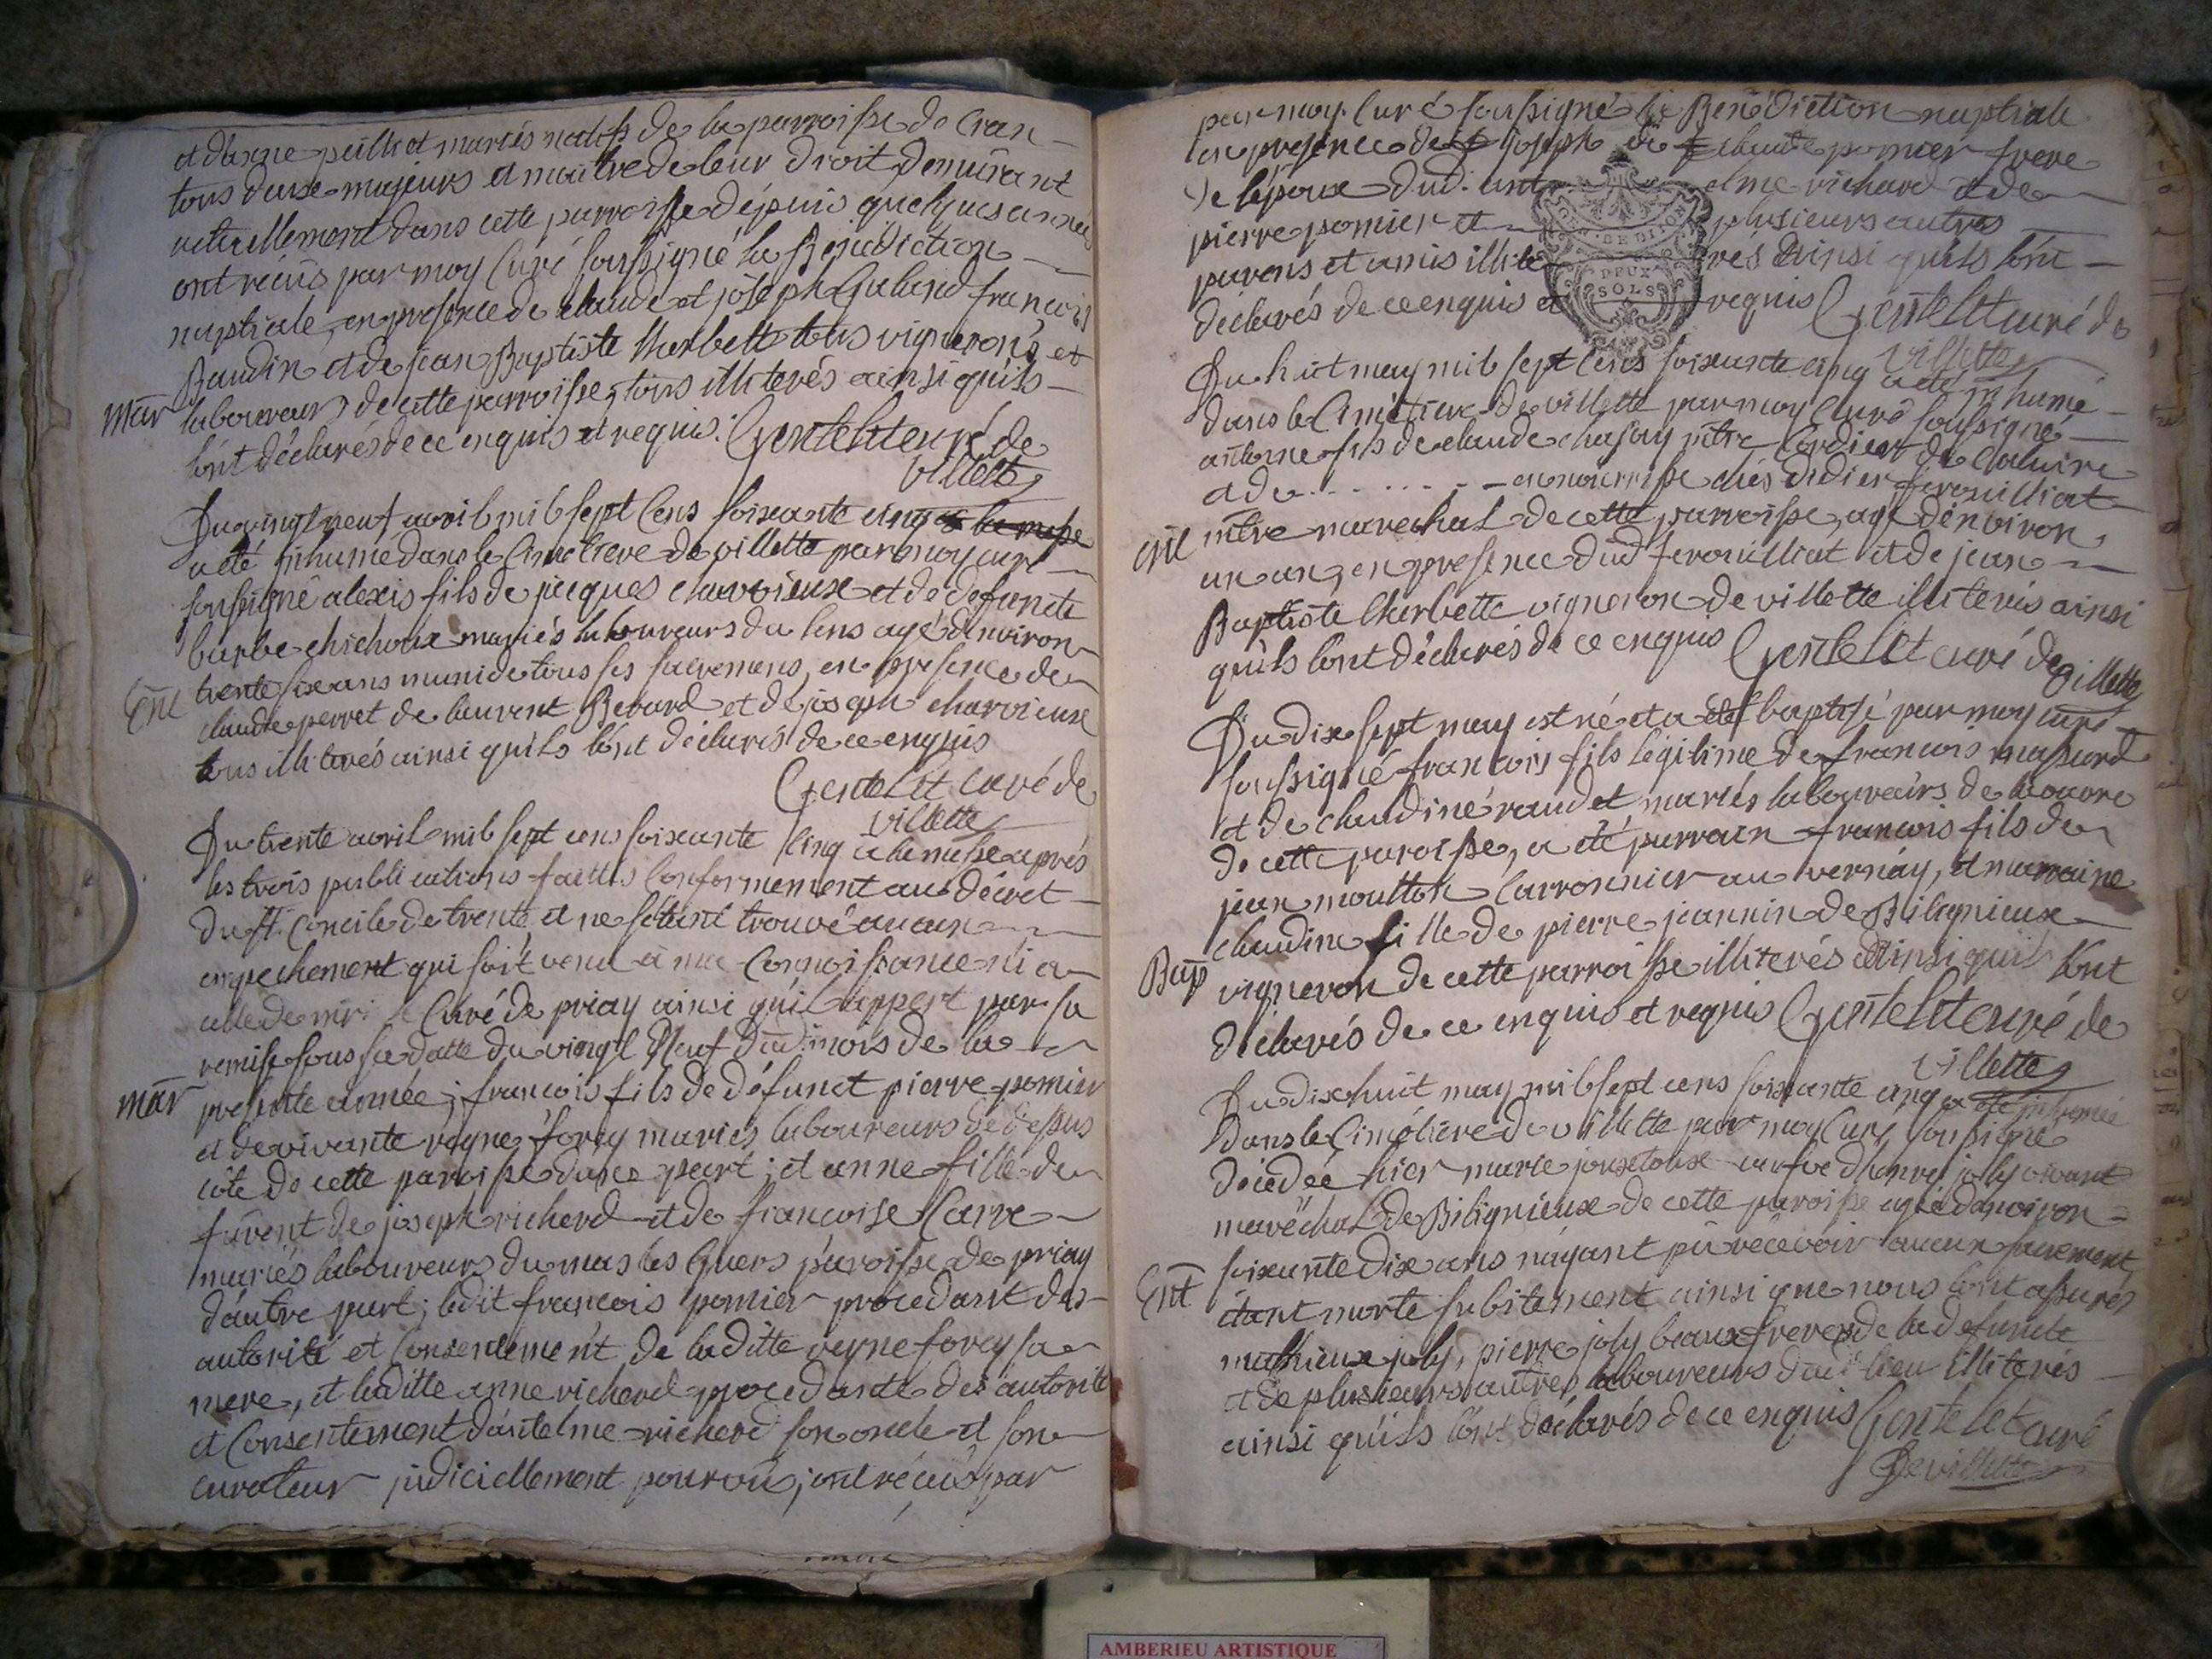 et danne peillet mariés natifs de la parroisse de Cran
tous deux majeurs et maitre de leur droit demeurant
actuellement dans cette parroisse dépuis quelques années
ont réçus par moy Curé soussigné la Bénédiction
nuptiale, en presence de claude et joseph francois
Baudin et de jean Baptiste Charbette tous vignerons et
mar laboureurs de cette parroisse, tous illiterés ainsi quils
lont déclarés de ce enquis et requis. Gentelet curé de
villette
Du vingt neuf avril mil sept cens soixante cinq a la messe
a eté inhumé dans le Cimetiere de villette par moy curé
soussigné alexis fils de jacques charvieux et de defuncte
barbe chichoux mariés laboureurs du lens agé denviron
Ent trente six ans muni de tous ses sacremens, en presence de
claude perret de laurent Berard et de joseph charvieux
tous illiterés ainsi quils lont déclarés de ce enquis
Gentelet curé de
villette
Du trente avril mil sept cens soixante cinq a la messe aprés
les trois publications faittes conformement au décret
du st. Concile de trente et ne sétant trouvé aucun
empechement qui soit venu à ma connoissance ni a
celle de mr. le Curé de priay ainsi quil appert par sa
remise sous sa datte du vingt Neuf dud. mois de la
mar presente année; francois fils de défunct pierre pomier
et de vivante reyne forey mariés laboureurs de dessus
côte de cette paroisse dune part; et anne fille de
furent de joseph richerd et de francoise Carre
mariés laboureurs du mas les Guers paroisse de priay
dautre part; ledit francois pomier procedant des
autorité et consentement de laditte reyne forey sa
mere, et laditte anne richerd procedante des autorité
et Consentement dantelme richerd son oncle et son
curateur judiciellement pourvû; ont réçus par
par moy Curé soussigné la Bénédiction nuptiale
en presence de joseph et claude pomier frere
de lépoux dud. antelme richard et de
pierre pomier et plusieurs autres
parens et amis illiterés ainsi quils lont
déclarés de ce enquis et requis Gentelet curé de
villette
Du huit may mil sept cens soixante cinq a eté inhumé
dans le Cimetiere de villette par moy Curé soussigné
antoine fils de claude mtre Cordier de
et de . . . . . . . en nourrisse chés didier ferouilliat
Ent mtre marechal de cette parroisse, agé dénviron
un an, en presence dud ferouilliat et de jean
Baptiste Charbette vigneron de villette illiterés ainsi
quils lont déclarés de ce enquis Gentelet curé de
villette
Du dix sept may est né et a eté baptisé par moy curé
soussigné francois fils légitime de francois masard
et de claudine raudet mariés laboureurs de
de cette paroisse, a eté parrain francois fils de
jean Carronnier au vernay, et marraine
claudine fille de pierre jeannin de Bilignieux
Bap vigneron de cette parroisse illiterés ainsi quils lont
déclarés de ce enquis et requis Gentelet curé de
villette
Du dix huit may mil sept cens soixante cinq a eté inhumée
Dans le Cimétiere de villette par moy Curé soussigné
décedée hier marie veufve dhenry joly vivant
maréchal de Bilignieux de cette paroisse agée denviron
soixante dix ans náyant pû récévoir aucun sacrement,
Ent étant morte subitement ainsi que nous lont assurés
mathieux joly, pierre joly beaux freres de la defuncte
et de plusieurs autres laboureurs dud. lieu illiterés
ainsi quils lont déclarés de ce enquis Gentelet curé
De villette
DEUX
SOLS
AMBERIEU ARTISTIQUE